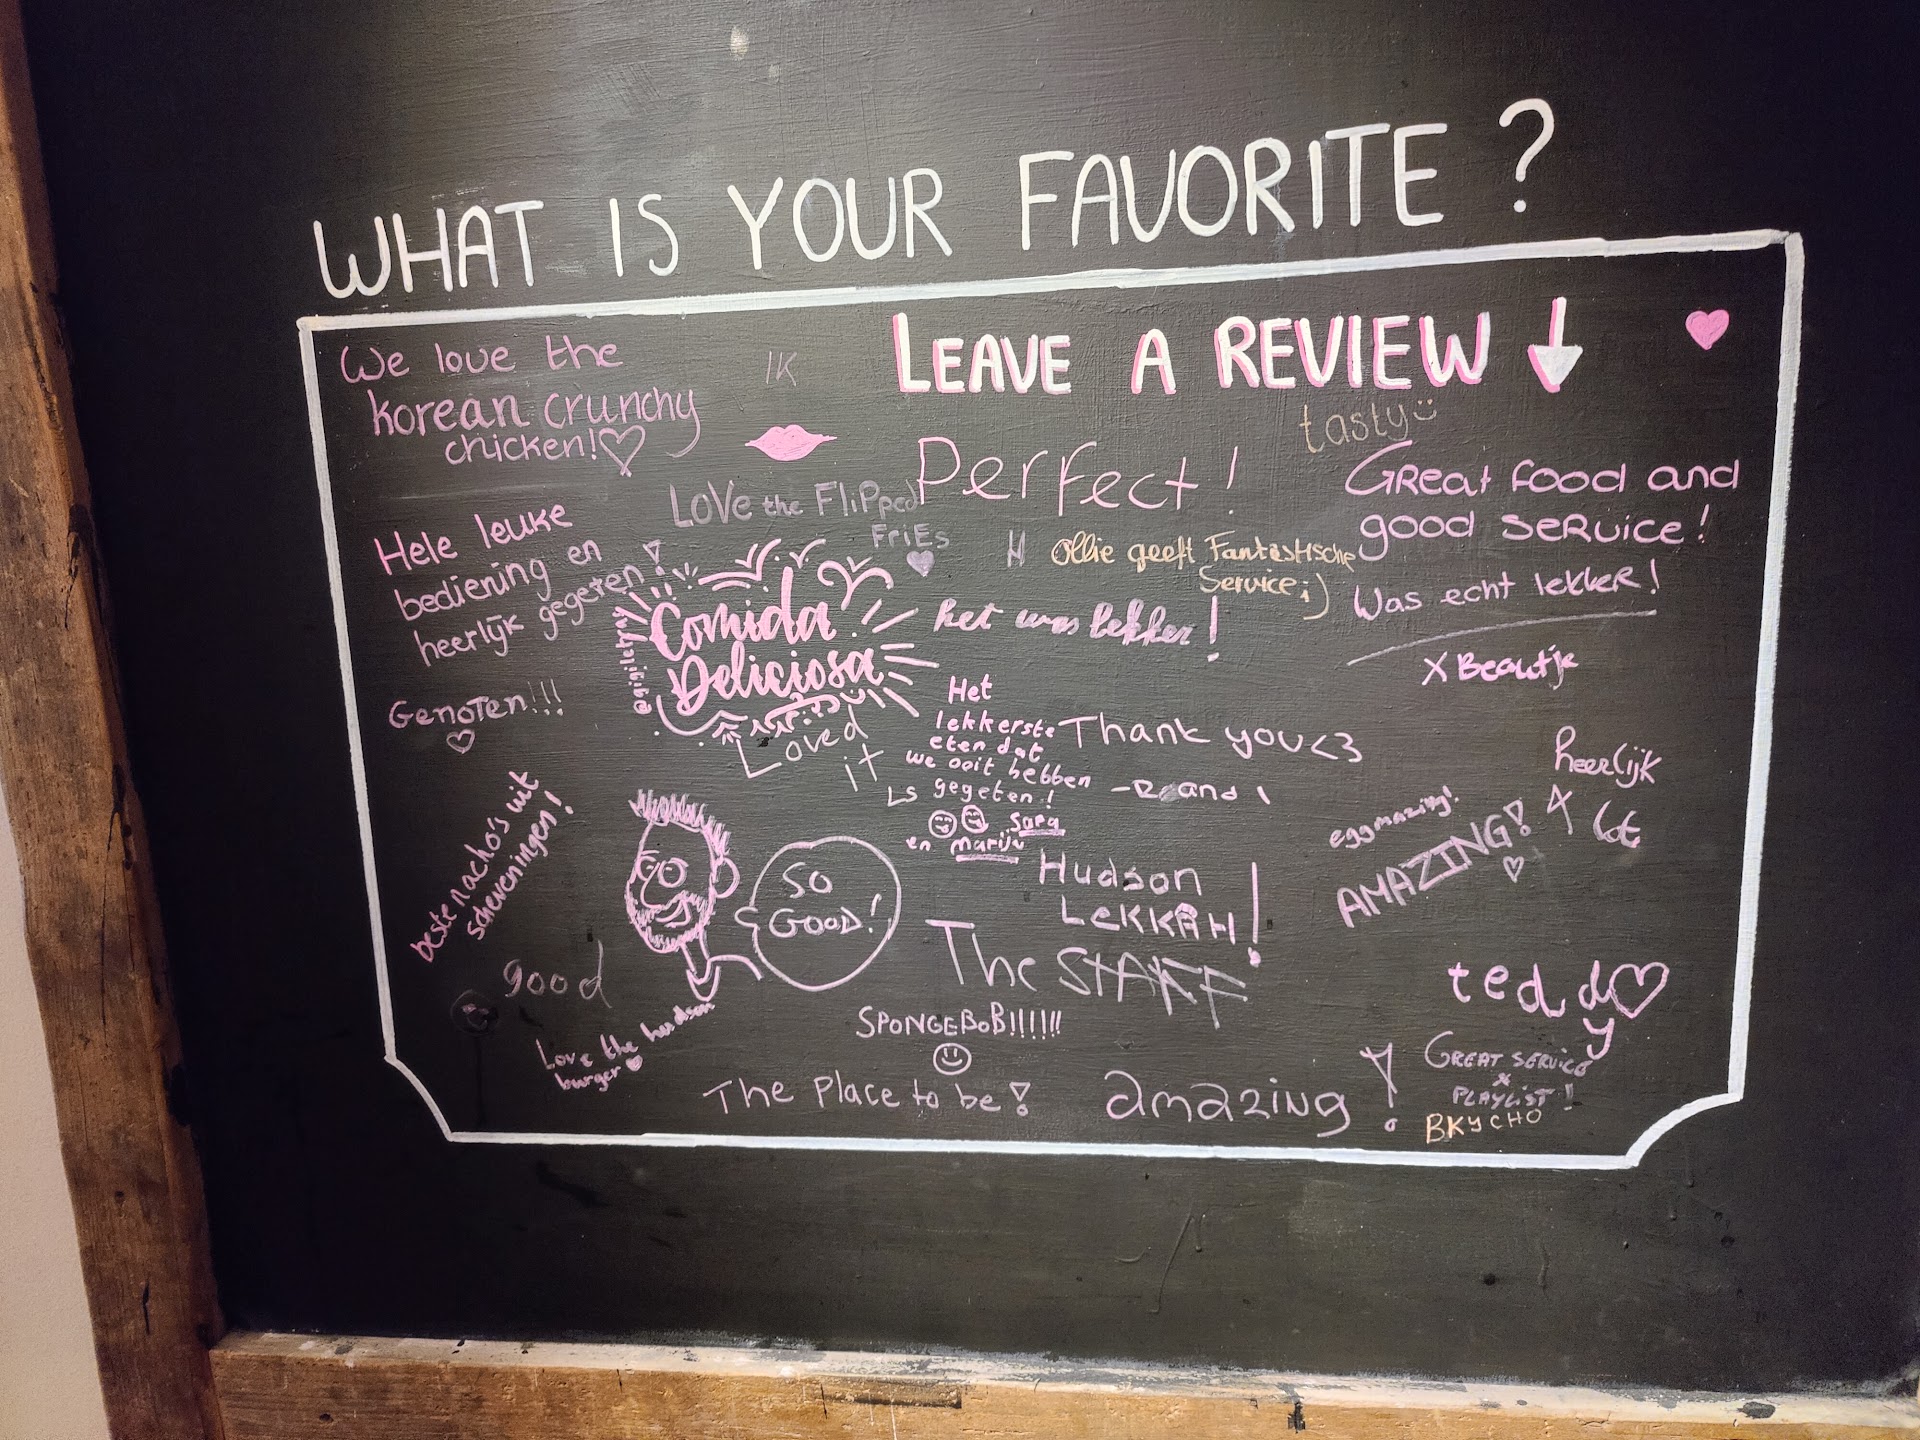 WHAT IS YOUR FAVORITE ?
LEAVE A REVIEW
We love the
korean crunchy
chicken!
1K
tasty
Perfect !
Great food and
good service!
LOVE the FLIPPED
FRIES
Hele leuke
bediening en
heerlijk gegeten!
H
Ollie geeft Fantastische
Service ;)
Was echt lekker!
het was lekker!
Comida
Deliciosa
X Beautje
Genoten!!!
Loved
it
Het
lekkerste
eten dat
we ooit hebben
gegeten!
Sara
en
Thank you <3
heerlijk
beste nacho's uit
scheveningen!
SO
GOOD!
eggmazing!
AMAZING!
Hudson
LEKKAH!
The STAFF
good
tedd
y
SPONGEBOB!!!!!!
Love the hudson
burger
The Place to be!
amazing !
GREAT SERVICE
x
PLAYLIST!
BKYCHO